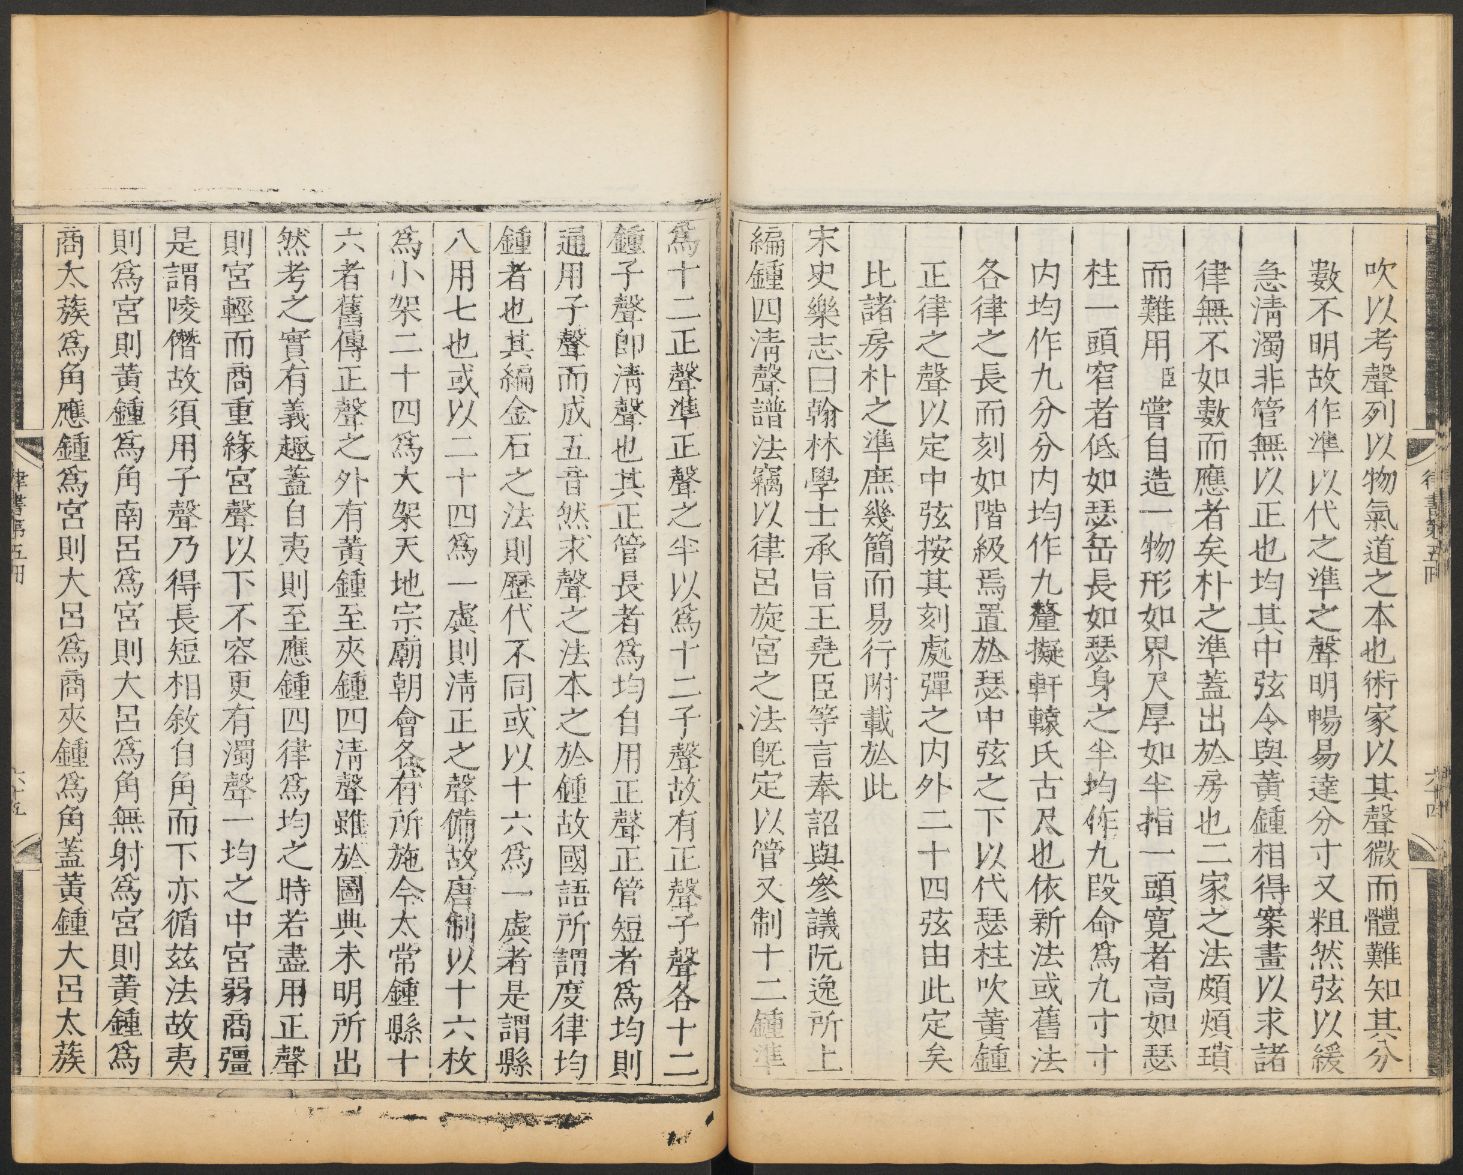 吹以考聲列以物氣道之本也術家以其聲微而體難知其分
數不明故作準以代之準之聲明暢易達分寸又粗然弦以緩
急淸濁非管無以正也均其中弦令與黃鍾相得案畫以求諸
律無不如數而應者矣朴之準蓋出於房也二家之法頗煩瑣
而難用臣嘗自造一物形如界尺厚如半指一頭寬者高如瑟
柱一頭窄者低如瑟岳長如瑟身之半均作九段命爲九寸寸
内均作九分分内均作九釐擬軒轅氏古尺也依新法或舊法
各律之長而刻如階級焉置於瑟中弦之下以代瑟柱吹黃鍾
正律之聲以定中弦按其刻處彈之内外二十四弦由此定矣
比諸房朴之準庶幾簡而易行附載於此
宋史樂志曰翰林學士承旨王堯臣等言奉詔與參議阮逸所上
編鍾四淸聲譜法竊以律呂旋宮之法旣定以管又制十二鍾準
律書第五冊
六十四
爲十二正聲準正聲之半以爲十二子聲故有正聲子聲各十二
鍾子聲卽淸聲也其正管長者爲均自用正聲正管短者爲均則
通用子聲而成五音然求聲之法本之於鍾故國語所謂度律均
鍾者也其編金石之法則歷代不同或以十六爲一虡者是謂縣
八用七也或以二十四爲一虡則淸正之聲備故唐制以十六枚
爲小架二十四爲大架天地宗廟朝會各有所施今太常鍾縣十
六者舊傳正聲之外有黃鍾至夾鍾四淸聲雖於圖典未明所出
然考之實有義趣蓋自夷則至應鍾四律爲均之時若盡用正聲
則宮輕而商重緣宮聲以下不容更有濁聲一均之中宮弱商彊
是謂陵僭故須用子聲乃得長短相敘自角而下亦循茲法故夷
則爲宮則黃鍾爲角南呂爲宮則大呂爲角無射爲宮則黃鍾爲
商太蔟爲角應鍾爲宮則大呂爲商夾鍾爲角蓋黃鍾大呂太蔟
律書第五冊
六十五